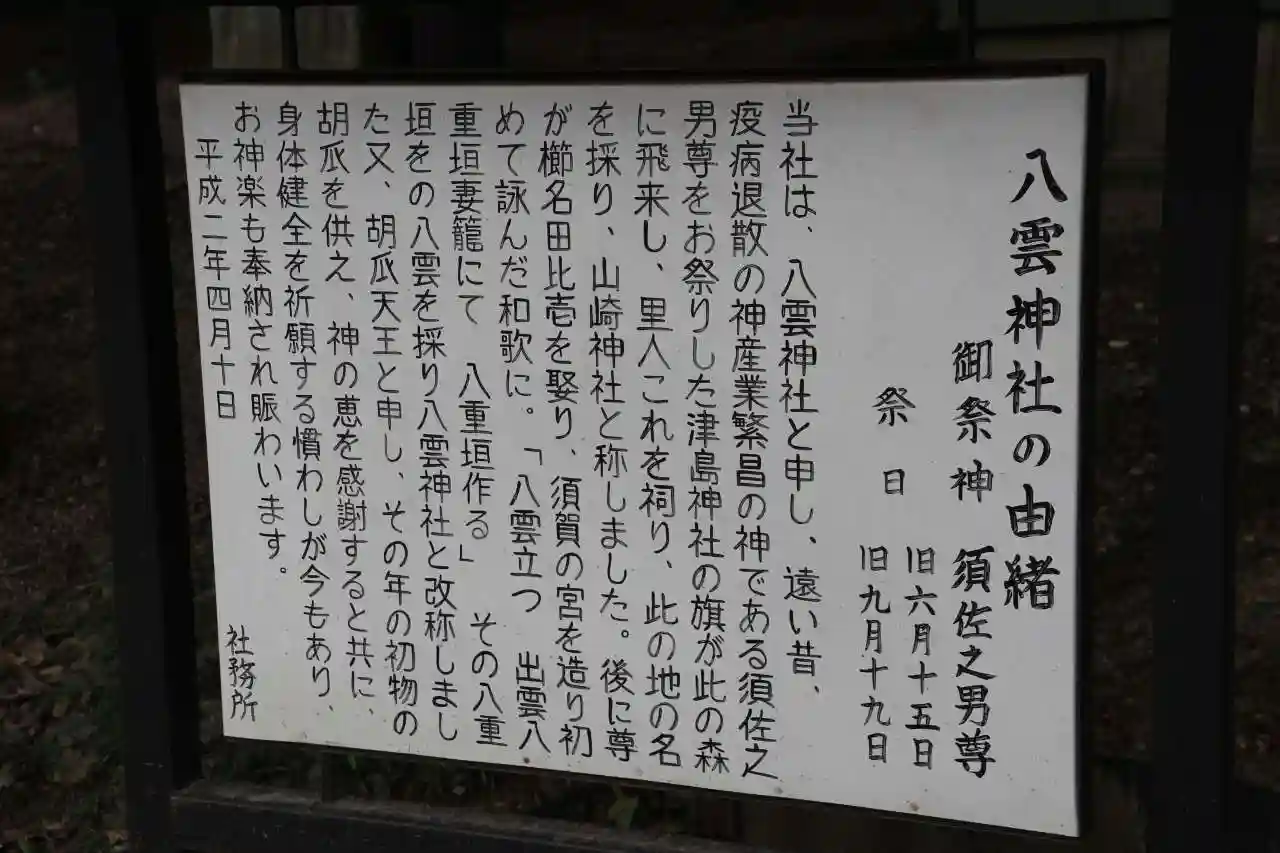 八雲神社の由緒
御祭神 須佐之男尊
祭日 旧六月十五日
旧九月十九日
当社は、八雲神社と申し、遠い昔、
疫病退散の神産業繁昌の神である須佐之
男尊をお祭りした津島神社の旗が此の森
に飛来し、里人これを祠り、此の地の名
を採り、山崎神社と称しました。後に尊
が櫛名田比壱を娶り、須賀の宮を造り初
めて詠んだ和歌に。「八雲立つ 出雲八
重垣妻籠にて 八重垣作る」 その八重
垣をの八雲を採り八雲神社と改称しまし
た又、胡瓜天王と申し、その年の初物の
胡瓜を供え、神の恵を感謝すると共に、
身体健全を祈願する慣わしが今もあり、
お神楽も奉納され賑わいます。
平成二年四月十日
社務所